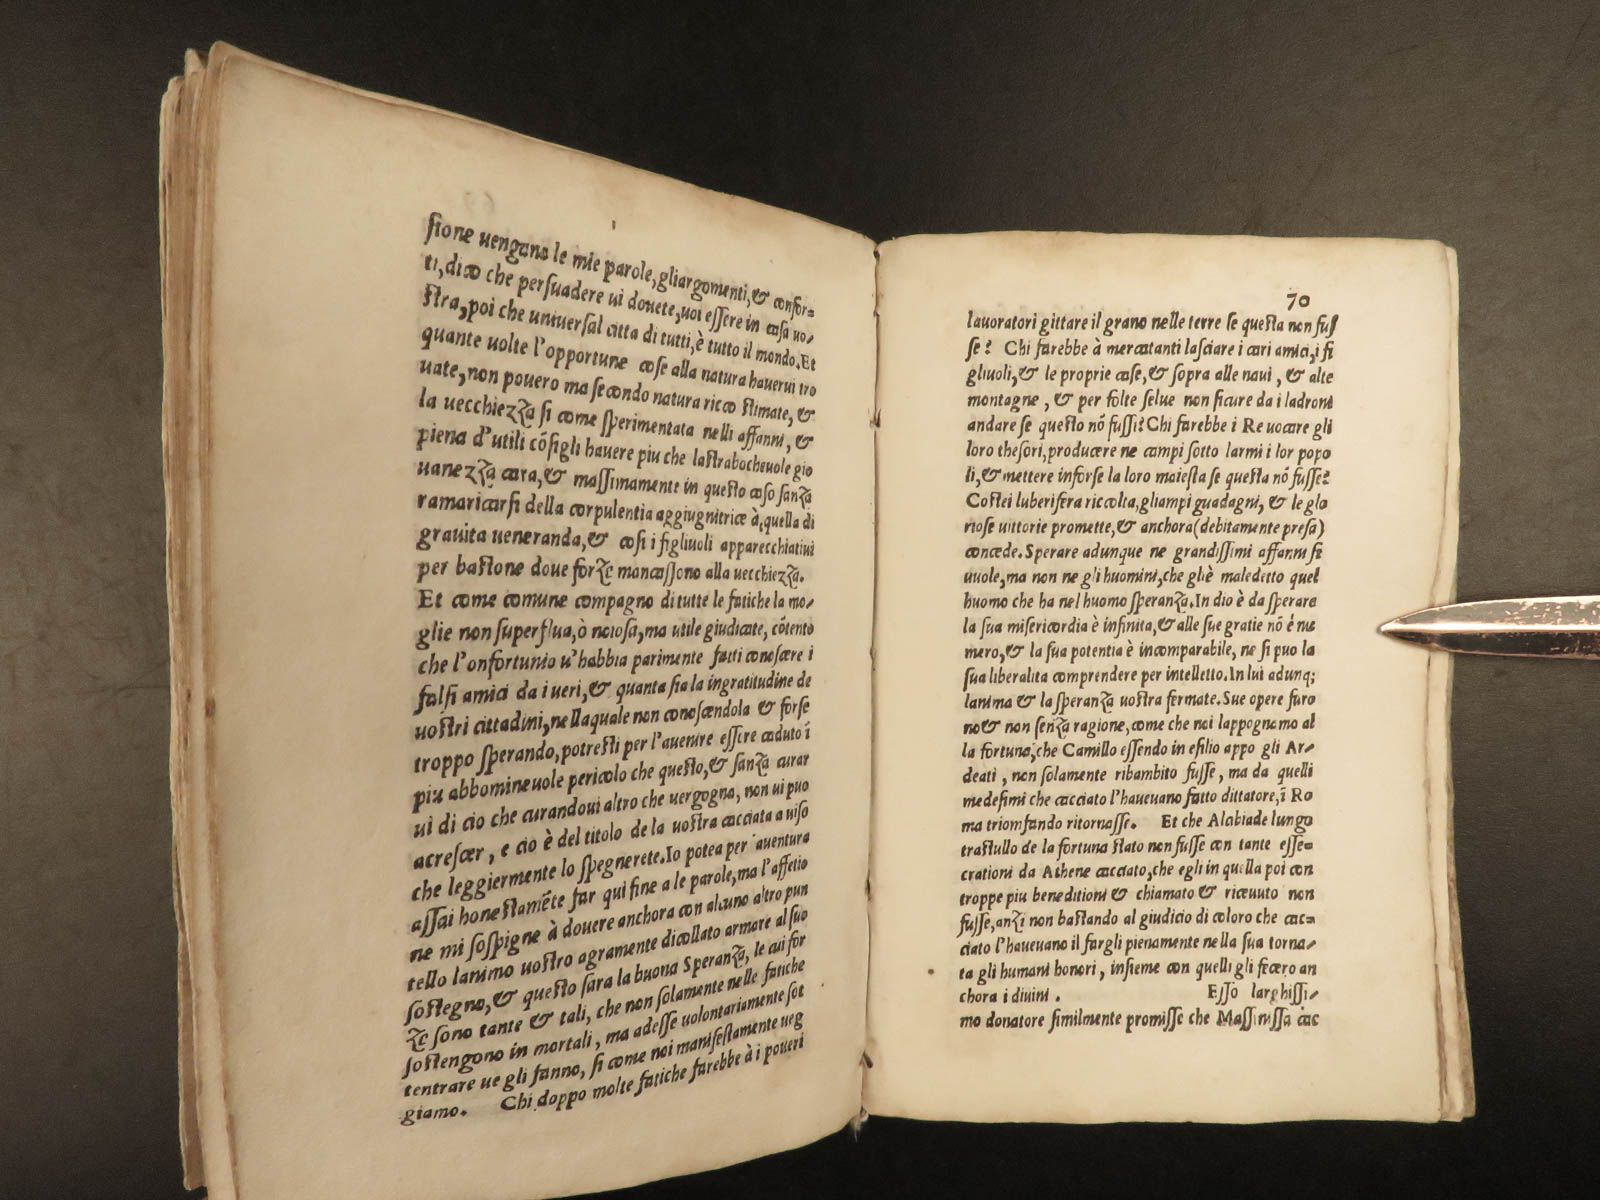 ſione uengano le mie parole, gliargomenti, & confor=
ti, dico che perſuadere ui douete, uoi eſſere in caſa uo/
ſtra, poi che uniuerſal citta di tutti, è tutto il mondo. Et
quante uolte l'opportune coſe alla natura hauerui tro
uate, non pouero ma ſecondo natura ricco ſtimate, &
la uecchiezza ſi come ſperimentata nelli affanni, &
piena d'utili cōſigli hauere piu che laſtrabocheuole gio
uanezza cara, & maſſimamente in queſto caſo ſanza
ramaricarſi della corpulentia aggiugnitrice à, quella di
grauita ueneranda, & coſi i figliuoli apparecchiatiui
per baſtone doue forze mancaſſono alla uecchiezza.
Et come comune compagno di tutte le fatiche la mo/
glie non ſuperflua, ò noioſa, ma utile giudicate, cōtento
che l'onfortunio u'habbia parimente fatti conoſcere i
falſi amici da i ueri, & quanta ſia la ingratitudine de
uoſtri cittadini, nella quale non conoſcendola & forſe
troppo ſperando, potreſti per l'auenire eſſere caduto ī
piu abbomineuole pericolo che queſto, & ſanza curar
ui di cio che curandoui altro che uergogna, non ui puo
acreſcer, e cio è del titolo de la uoſtra cacciata a uiſo
che leggiermente lo ſpegnerete. Io potea per auentura
aſſai honeſtamēte far qui fine a le parole, ma l'affetio
ne mi ſoſpigne à douere anchora con alcuno altro pun
tello lanimo uoſtro agramente dicollato armare al ſuo
ſoſtegno, & queſto ſara la buona Speranza, le cui for
ze ſono tante & tali, che non ſolamente nelle fatiche
ſoſtengono in mortali, ma adeſſe uolontariamente ſot
tentrare ue gli fanno, ſi come noi manifeſtamente ueg
giamo. Chi doppo molte fatiche farebbe à i poueri
70
lauoratori gittare il grano nelle terre ſe queſta non fuſ
ſe? Chi farebbe à mercatanti laſciare i cari amici, i fi
gliuoli, & le proprie caſe, & ſopra alle naui, & alte
montagne, & per folte ſelue non ſicure da i ladroni
andare ſe queſto nō fuſſi? Chi farebbe i Re uocare gli
loro theſori, producere ne campi ſotto larmi i lor popo
li, & mettere inforſe la loro maieſta ſe queſta nō fuſſe?
Coſtei luberifera ricolta, gliampi guadagni, & le glo
rioſe uittorie promette, & anchora (debitamente preſa)
concede. Sperare adunque ne grandiſſimi affanni ſi
uuole, ma non ne gli huomini, che gliè maledetto quel
huomo che ha nel huomo ſperanza. In dio è da ſperare
la ſua miſericordia è infinita, & alle ſue gratie nō è nu
mero, & la ſua potentia è incomparabile, ne ſi puo la
ſua liberalita comprendere per intelletto. In lui adunq;
lanima & la ſperanza uoſtra fermate. Sue opere furo
no & non ſenza ragione, come che noi lappognamo al
la fortuna, che Camillo eſſendo in eſilio appo gli Ar/
deati, non ſolamente ribambito fuſſe, ma da quelli
medeſimi che cacciato l'haueuano fatto dittatore, ī Ro
ma triomfando ritornaſſe. Et che Alcibiade lungo
traſtullo de la fortuna ſtato non fuſſe con tante eſſe=
crationi da Athene cacciato, che egli in quella poi con
troppe piu beneditioni & chiamato & riceuuto non
fuſſe, anzi non baſtando al giudicio di coloro che cac=
ciato l'haueuano il fargli pienamente nella ſua torna/
ta gli humani honori, inſieme con quelli gli fecero an
chora i diuini. Eſſo larghiſſi/
mo donatore ſimilmente promiſſe che Maſſiniſſa cac